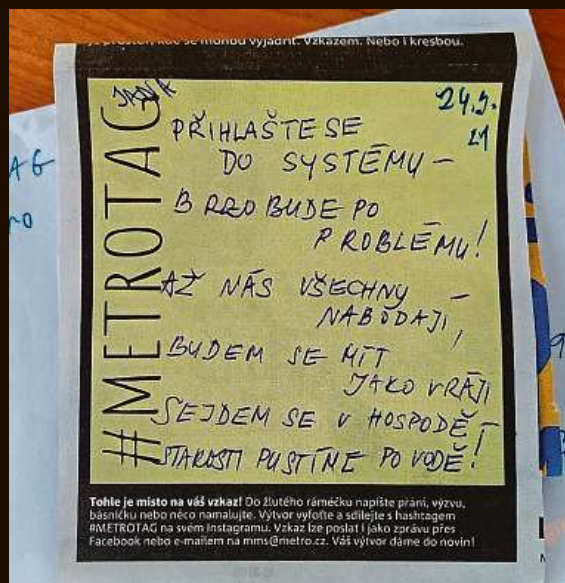 je prostor, kde se mohou vyjádřit. Vzkazem. Nebo i kresbou.
#METROTAG
24.3.
21
PŘIHLAŠTE SE
DO SYSTÉMU –
BRZO BUDE PO
PROBLÉMU!
AŽ NÁS VŠECHNY –
NABODAJÍ,
BUDEM SE MÍT
JAKO V RÁJI
SEJDEM SE V HOSPODĚ –
STAROSTI PUSTÍME PO VODĚ!
Tohle je místo na váš vzkaz! Do žlutého rámečku napište přání, výzvu,
básničku nebo něco namalujte. Výtvor vyfoťte a sdílejte s hashtagem
#METROTAG na svém Instagramu. Vzkaz lze poslat i jako zprávu přes
Facebook nebo e-mailem na mms@metro.cz. Váš výtvor dáme do novin!